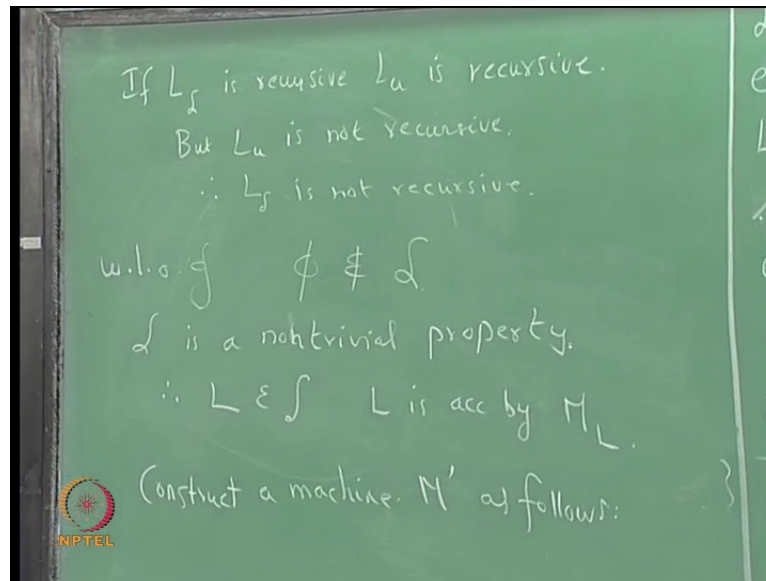 If L_𝒮 is recursive L_u is recursive.
But L_u is not recursive.
∴ L_𝒮 is not recursive.
w.l.o.g ϕ ∉ 𝒮
𝒮 is a nontrivial property.
∴ L ∈ 𝒮 L is acc by M_L.
Construct a machine M' as follows:
NPTEL